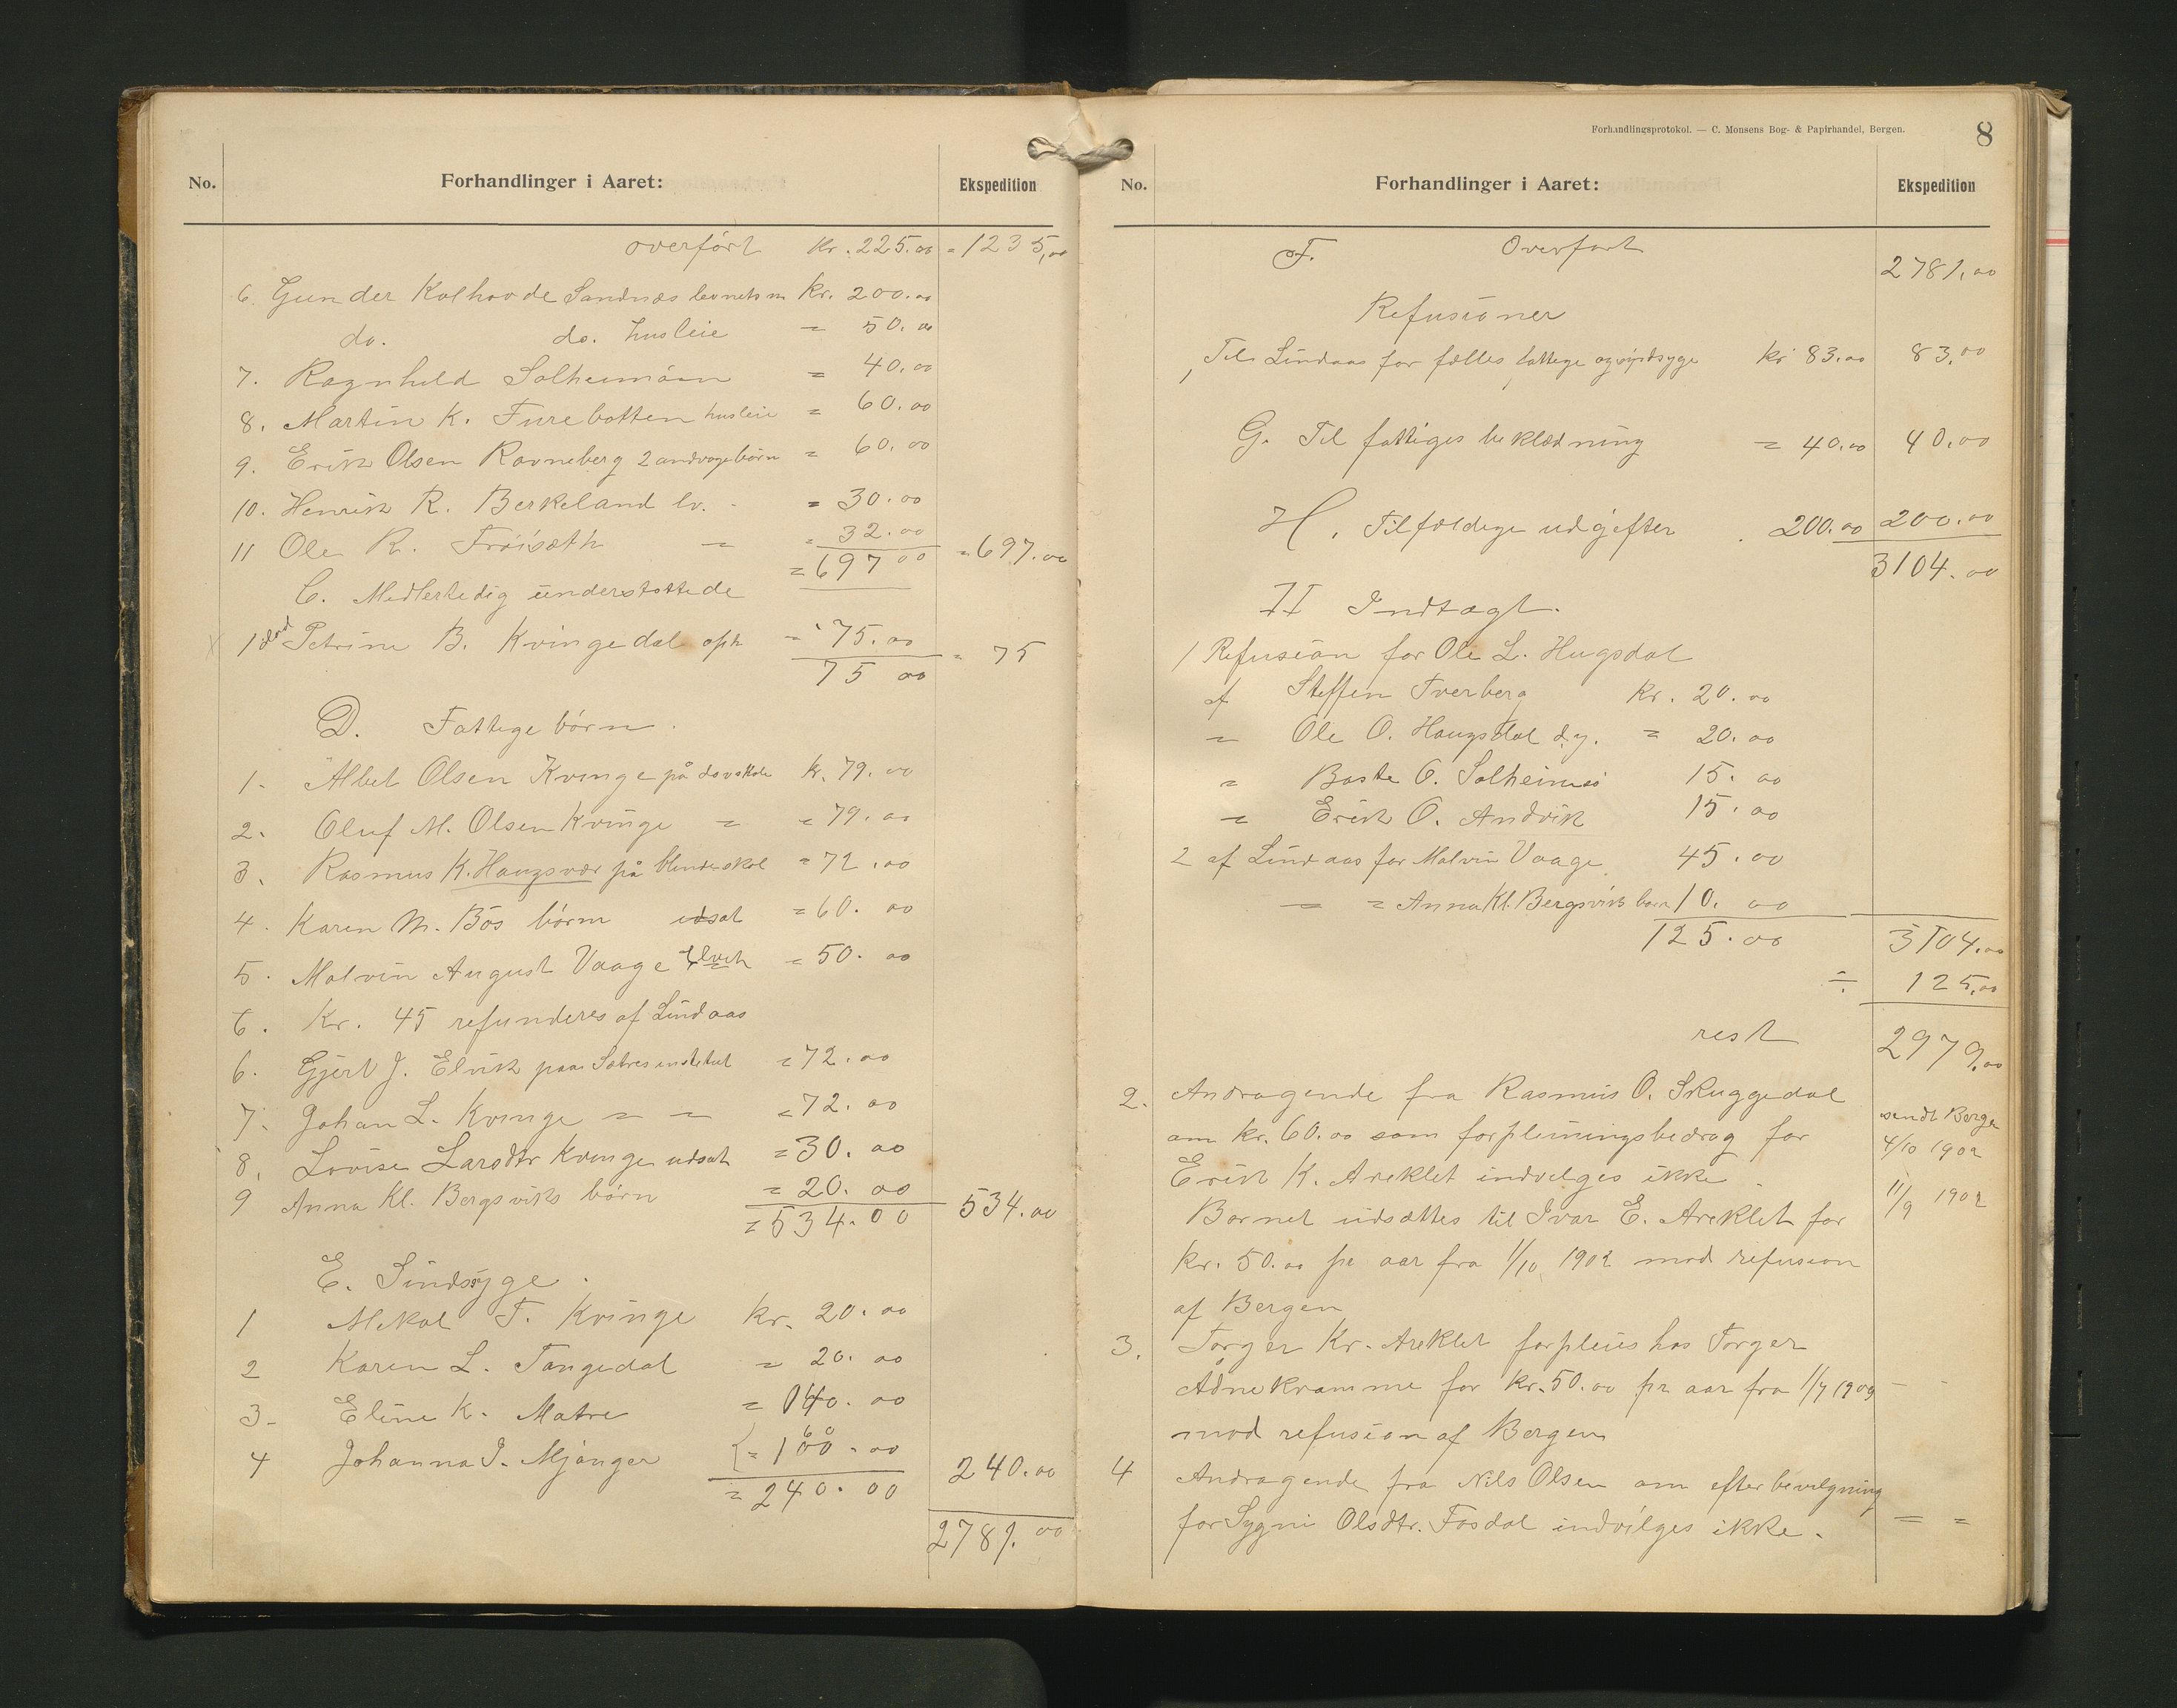 No. Forhandlinger i Aaret: Ekspedition
overført Kr. 225.00 = 1235,00
6. Gunder Kolhovde Sandnæs kr. 200.00
do. do. husleie = 50.00
7. Ragnhild Solheimsæn = 40.00
8. Martin K. Furebotten husleie = 60.00
9. Erik Olsen Ravneberg 2 børn = 60.00
10. Henrik R. Berkeland lv. - = 30.00
11 Ole R. Frøisæth = = 32.00
= 697 00 = 697.00
C. Midlertidig understøttede
1 død Petrine B. Kvingedal oph = 75.00
75 00 = 75
D. Fattige børn.
1. Albel Olsen Kvinge på døvskole kr. 79.00
2. Oluf M. Olsen Kvinge = = 79.00
3. Rasmus K. Haugsvær på blindeskol = 72.00
4. Karen M. Bøs børn udsat = 60.00
5. Malvin August Vaage Elvik = 50.00
6. Kr. 45 refunderes af Lindaas
6. Gjert J. Elvik paa Sætres institut = 72.00
7. Johan L. Kvinge = = = 72.00
8. Lovise Larsdtr Kvinge udsat = 30.00
9 Anna Kl. Bergsviks børn = 20.00
= 534.00 534.00
E. Sindssyge.
1 Mikal T. Kvinge kr. 20.00
2 Karen L. Tangedal = 20.00
3- Eline K. Matre = 40.00
4 Johanna I. Mjånger = 160.00
= 240.00 240.00
2781.00
Forhandlingsprotokol. — C. Monsens Bog- & Papirhandel, Bergen. 8
No. Forhandlinger i Aaret: Ekspedition
F. Overført 2781,00
Refusioner
1 Til Lindaas for fælles fattige og sindsyge kr 83.00 83,00
G. Til fattiges beklædning = 40.00 40.00
H. Tilfældige udgifter 200.00 200.00
3104.00
II Indtægt.
1 Refusion for Ole L. Hugsdal
af Steffen Tverberg Kr. 20.00
= Ole O. Haugsdal d.y. = 20.00
= Baste O. Solheims 15.00
= Erik O. Andvik 15.00
2 af Lindaas for Malvin Vaage 45.00
= = Anna Kl. Bergsviks barn 10.00
125.00 3104.00
÷ 125,00
rest 2979,00
2. Andragende fra Rasmus O. Skuggedal
om kr. 60.00 som forpleiningsbedrag for sendt Bergen 4/10 1902
Erik K. Areklet indvilges ikke.
Barnet udsættes til Ivar E. Areklet for 11/9 1902
kr. 50.00 pr aar fra 1/10 1902 mod refusion
af Bergen
3. Torger Kr. Areklet forpleies hos Torger
Ådnekvamme for kr. 50.00 pr aar fra 1/7 1902 - -
mod refusion af Bergen
4 Andragende fra Nils Olsen om efterbevilgning
for Sygni Olsdtr. Fosdal indvilges ikke. = =